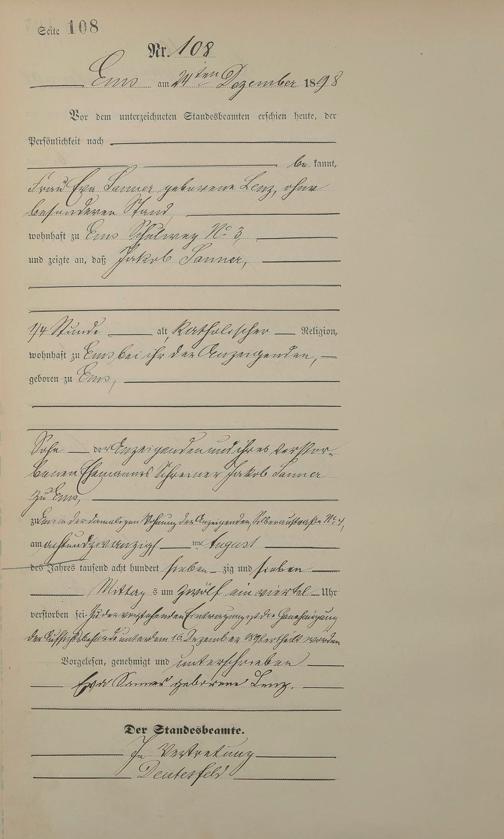 Seite 108
Nr. 108
Ems am 24ten Dezember 1898
Vor dem unterzeichneten Standesbeamten erschien heute, der
Persönlichkeit nach
be kannt,
Frau Eva Sanner geborene Lenz, ohne
besonderen Stand,
wohnhaft zu Ems Schulweg No 3,
und zeigte an, daß Jakob Sanner,
1/4 Stunde alt katholischer Religion,
wohnhaft zu Ems bei ihr der Anzeigenden,
geboren zu Ems,
Sohn der Anzeigenden und ihres verstor-
benen Ehemannes Schreiner Jakob Sanner
zu Ems,
zu Ems in der damaligen Wohnung der Anzeigenden, Silberaustraße No 4,
am achtundzwanzigsten August
des Jahres tausend acht hundert sieben zig und sieben
Mittags um zwölf ein viertel Uhr
verstorben sei. Zu der vorstehenden Eintragung ist die Genehmigung
der Aufsichtsbehörde unter dem 16. Dezember ertheilt worden
Vorgelesen, genehmigt und unterschrieben
Eva Sanner geborene Lenz.
Der Standesbeamte.
In Vertretung
Deutesfeld